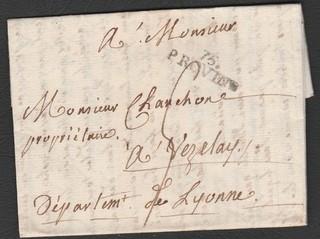 A' Monsieur
75.
PROVINS
Monsieur Chanchon
propriétaire.
A' Vezelay,
Départemt. de Lyonne.